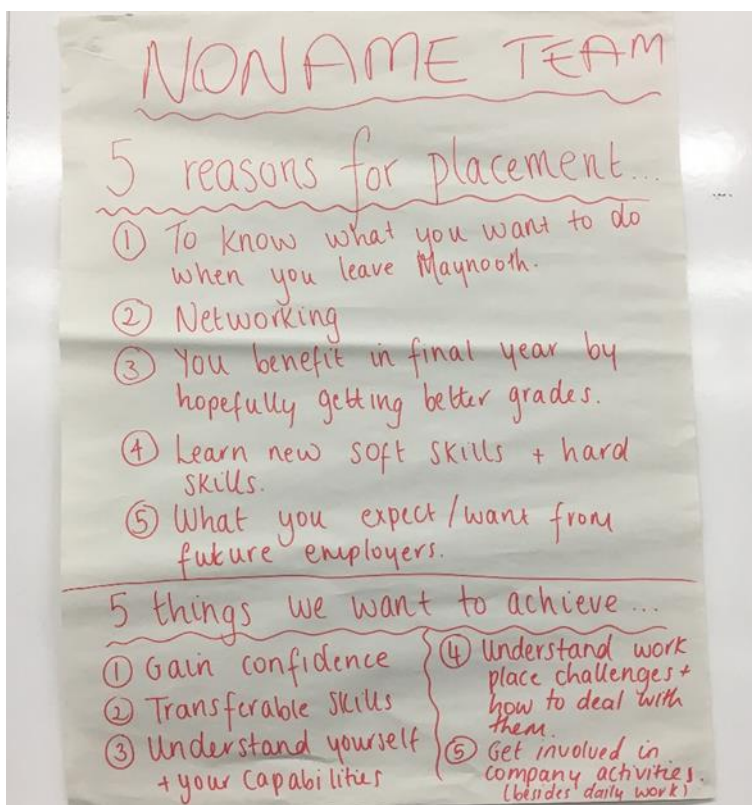 NONAME TEAM
5 reasons for placement...
① To know what you want to do
when you leave Maynooth.
② Networking
③ You benefit in final year by
hopefully getting better grades.
④ Learn new soft skills + hard
skills.
⑤ What you expect/want from
future employers.
5 things we want to achieve...
① Gain confidence
② Transferable skills
③ Understand yourself
+ your capabilities
④ Understand work
place challenges +
how to deal with
them.
⑤ Get involved in
company activities.
(besides daily work)